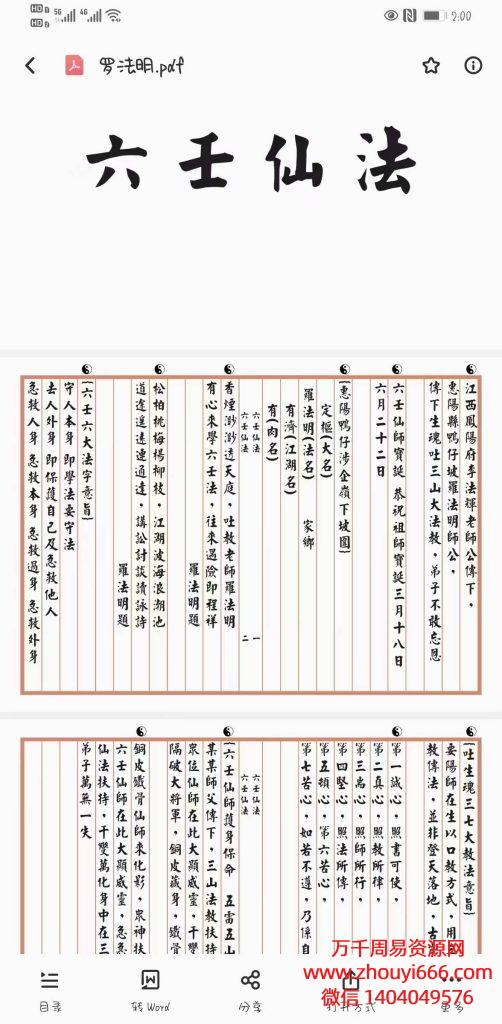 2:00
罗法明.pdf
六壬仙法
江西鳳陽府李法禪老師公傳下，
惠陽縣鴨仔坡羅法明師公，
傳下生魂吐三山大法教，弟子不敢忘恩
六壬仙師寳誕 恭祝祖師寳誕三月十八日
六月二十二日
(惠陽鴨仔涉企嶺下坡圍)
定樞(大名)
羅法明(法名) 家鄉
有濟(江湖名)
有(肉名)
六壬仙法 一
六壬仙法 二
香煙渺渺透天庭，吐教老師羅法明
有心來學六壬法，往來過險即程祥
羅法明題
松柏桃梅楊柳枝，江湖波海浪潮池
道途遥遠連通達，講訟討談讀詠詩
羅法明題
(六壬六大法字意旨)
守人本身 即學法要守法
去人外身 即保護自己及急救他人
急救人身 急救本身 急救過身 急救外身
(吐生魂三七大教法意旨)
要陽師在生以口教方式，用
教傳法，並非登天落地，古
第一誠心，照書可使，
第二真心，照教所律，
第三專心，照師所行，
第四堅心，照法所傳，
第五煩心，第六苦心，
第七苦心，如若不遵，乃係自
六壬仙法
六壬仙法
(六壬仙師護身保命 五雷五山
某某師父傳下，三山法教扶持
眾位仙師在此大顯威靈，千變
隔破大將軍，銅皮藏身，鐵骨
銅皮鐵骨仙師來化影，眾神扶
六壬仙師在此大顯威靈，急急
仙法扶持，千變萬化身中在三
弟子萬無一失
万千周易资源网
www.zhouyi666.com
微信 1404049576
目录
转Word
分享
打开方式
更多